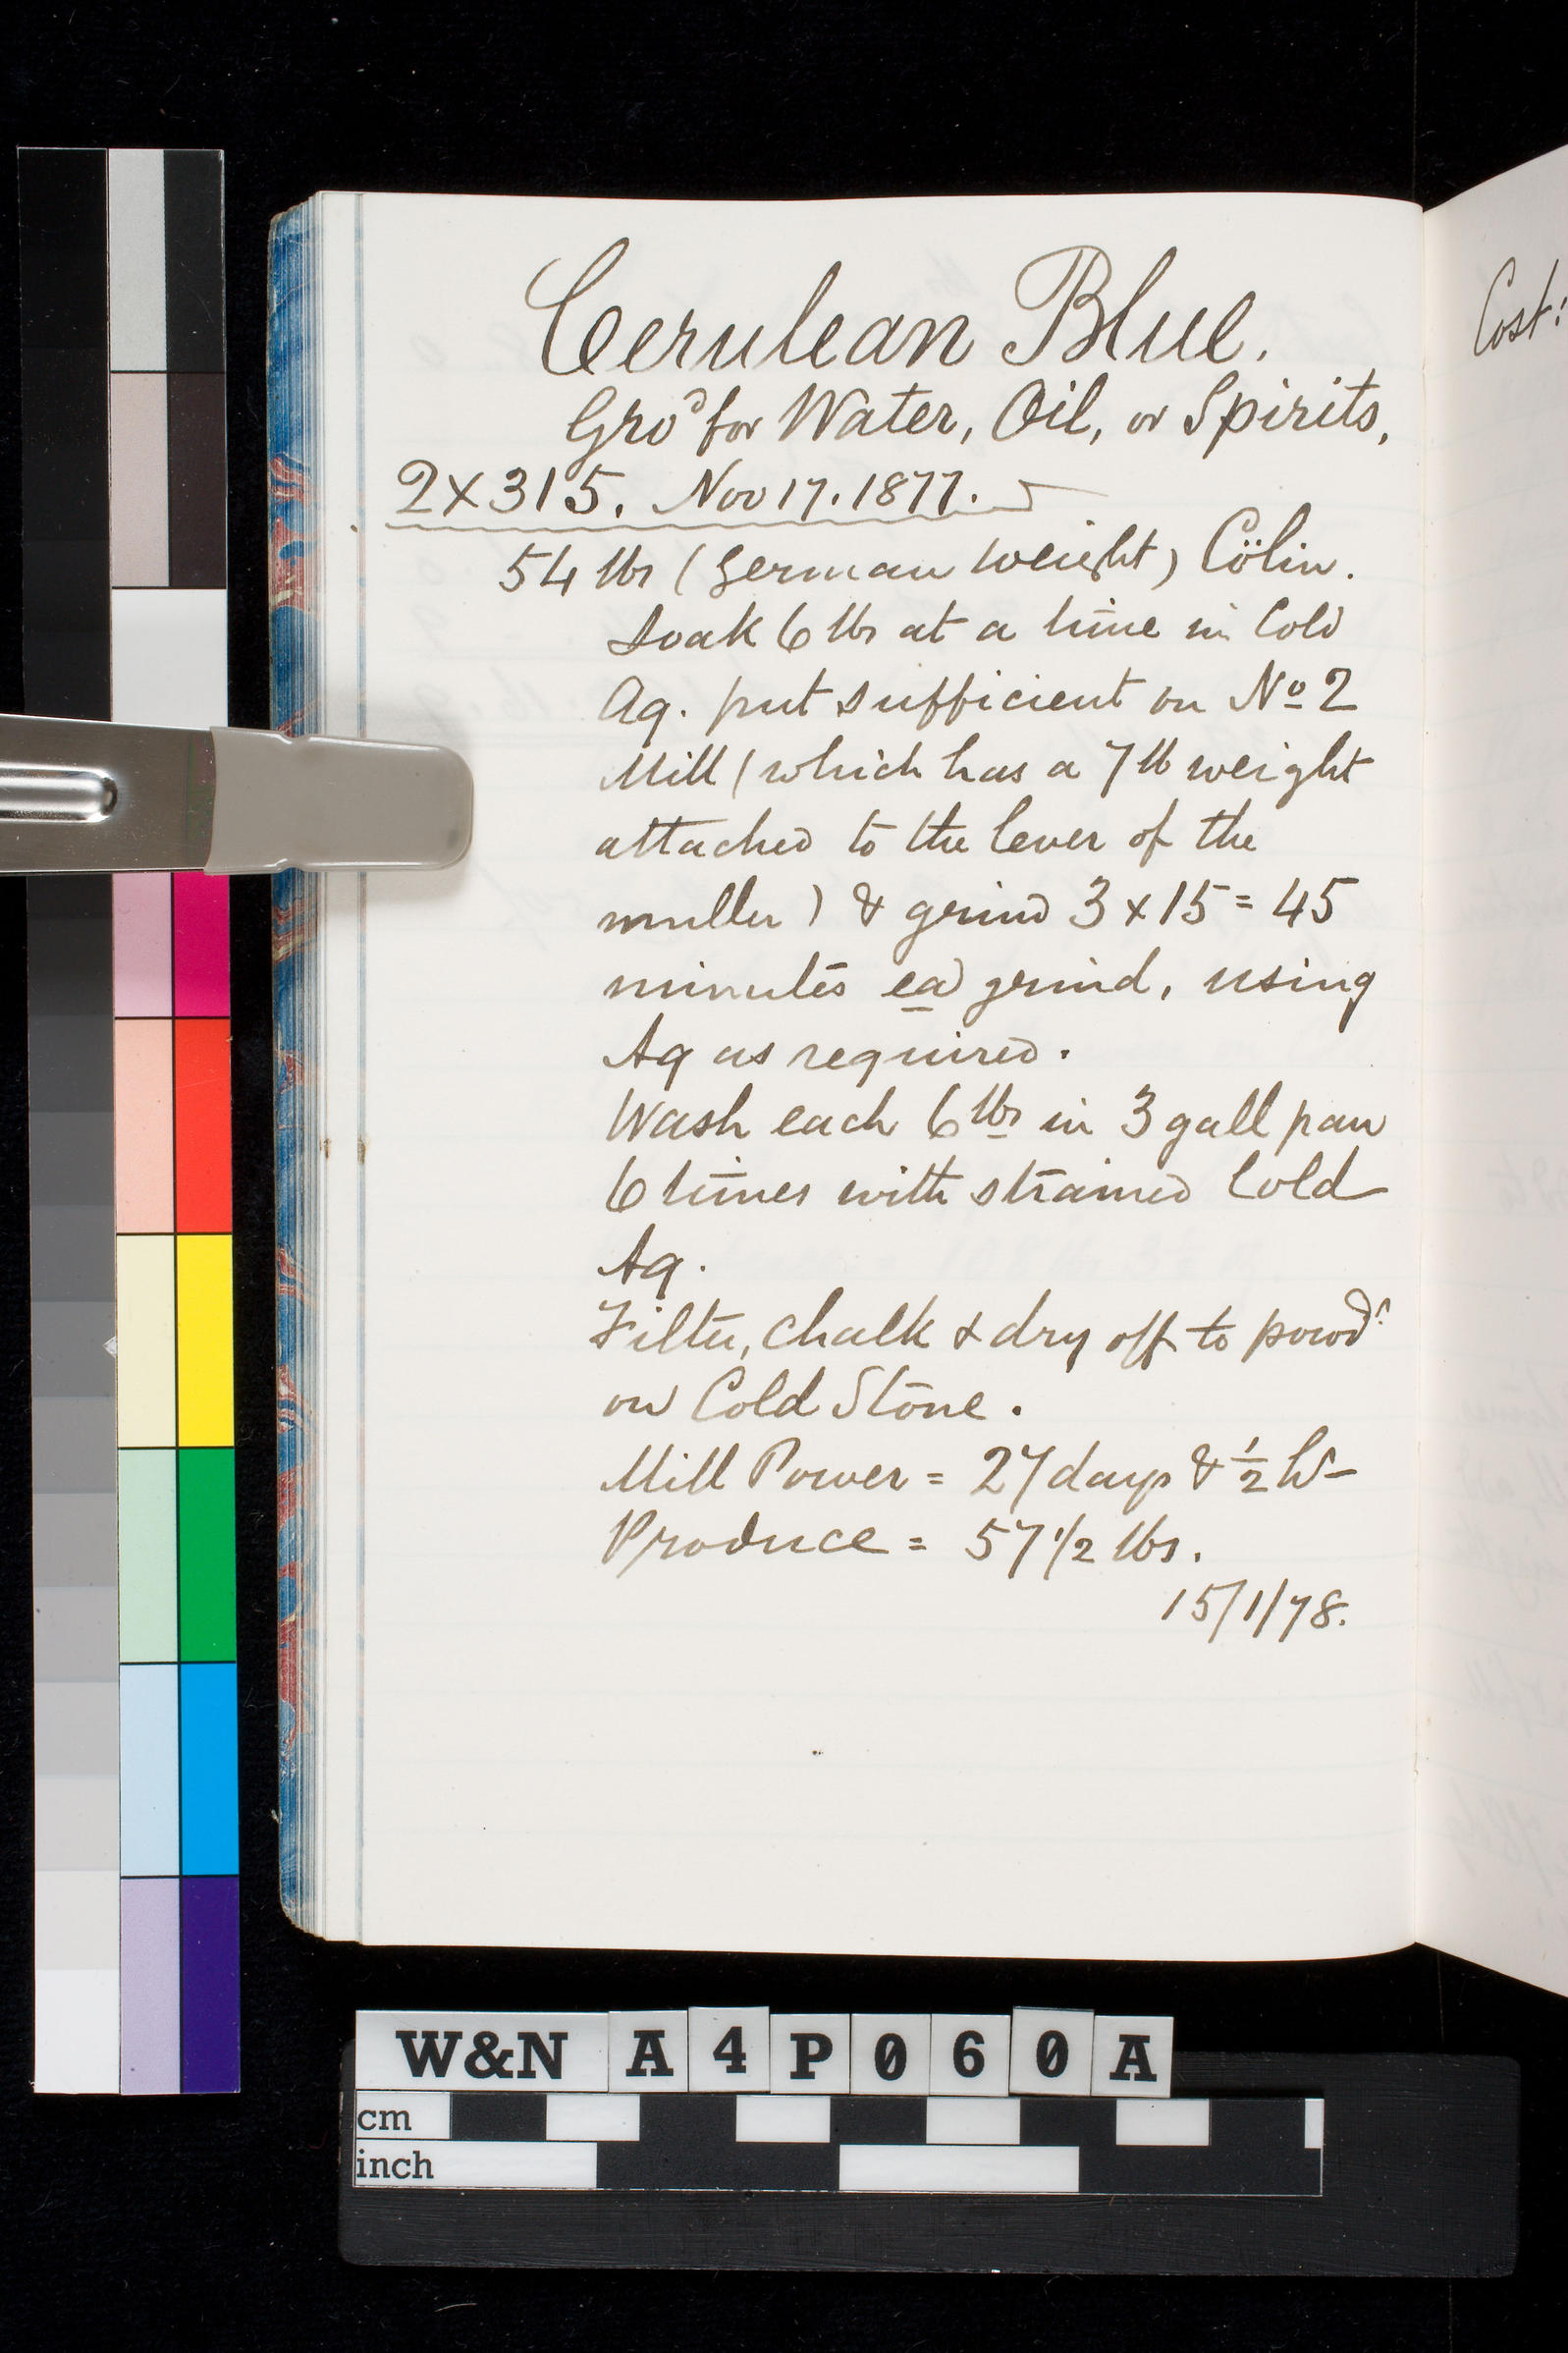 Cerulean Blue.
Gro^d for Water, Oil, or Spirits,
2X315. Nov 17. 1877.
54 lbs (German weight) Cölin.
Soak 6 lbs at a time in Cold
Aq. put sufficient on No 2
Mill (which has a 7 lb weight
attached to the lever of the
muller) & grind 3 x 15 = 45
minutes ea grind, using
Aq as required.
Wash each 6 lbs in 3 gall pan
6 times with strained Cold
Aq.
Filter, chalk & dry off to powd^r
on Cold Stone.
Mill Power = 27 days & 1/2 hr
Produce = 57 1/2 lbs.
15/1/78.
Cost:
W&N A4P060A
cm
inch